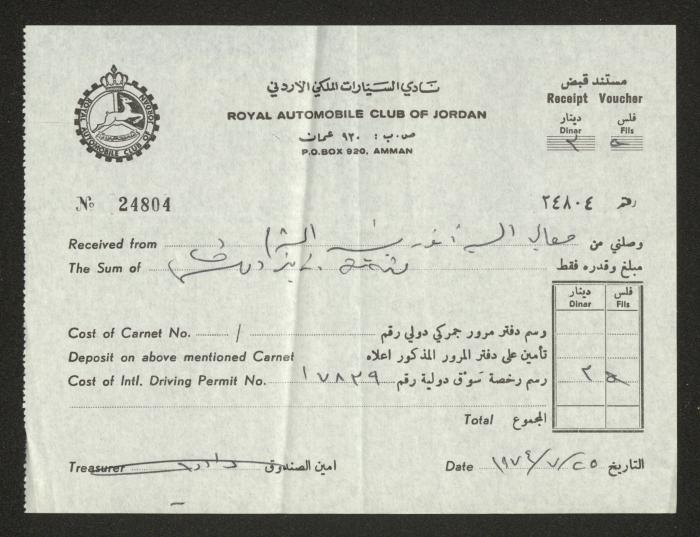 نادي السيارات الملكي الاردني
ROYAL AUTOMOBILE CLUB OF JORDAN
ص.ب : ٩٢٠ عمان
P.O.BOX 920, AMMAN
مستند قبض
Receipt Voucher
فلس دينار
Dinar Fils
ROYAL AUTOMOBILE CLUB OF JORDAN
№ 24804
رقم ٢٤٨٠٤
Received from معالي السيد وصلني من
The Sum of مبلغ وقدره فقط
فلس دينار
Dinar Fils
Cost of Carnet No. / وسم دفتر مرور جمركي دولي رقم
Deposit on above mentioned Carnet تأمين على دفتر المرور المذكور اعلاه
Cost of Intl. Driving Permit No. ١٧٨٢٩ رسم رخصة سوق دولية رقم
Total المجموع
Treasurer امين الصندوق
Date ١٩٧٤/٧/٢٥ التاريخ